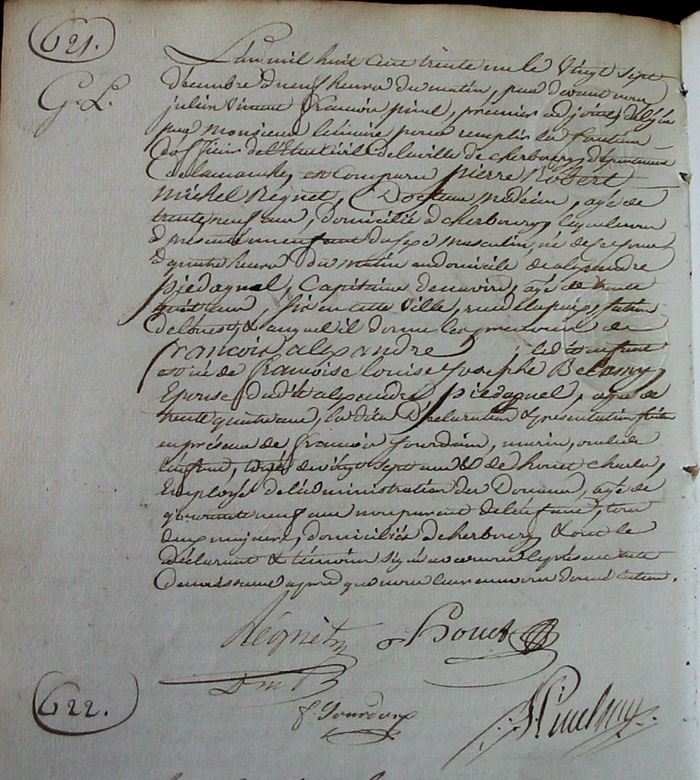 621.
G. L.
L'an mil huit cent trente un le Vingt Sept
Décembre à neuf heures du matin, par devant nous
julien Vincent françois pinel, premier adjoint délégué
par Monsieur le maire pour remplir les fonctions
d'officier de l'Etat Civil de la ville de cherbourg, département
de la manche, est comparu pierre Robert
michel Regnet, Docteur médecin, agé de
trente neuf ans, domicilié à cherbourg, lequel nous
a présenté un enfant du sexe masculin, né de ce jour
à quatre heures du matin au domicile de alexandre
piedagnel, Capitaine de navire, agé de trente
ans, en cette Ville, rue du puits,
de l'ouest, & auquel il donne les prénoms de
francois alexandre, le dit enfant
est né de françoise louise Josephe Belamy,
Epouse du dit alexandre piedagnel, agée de
trente quatre ans, la dite Déclaration & présentation faite
en présence de françois Jourdain, marin, oncle de
l'enfant, agé de vingt sept ans & de houet charles,
Employé de l'administration des Douanes, agé de
quarante neuf ans non parent de l'enfant, tous
deux majeurs, domiciliés à cherbourg, & ont le
déclarant & témoins signé avec nous le présent acte
de naissance après que nous leur en avons donné lecture.
Régnet houet
D. m. P.
f. Jourdan
622.